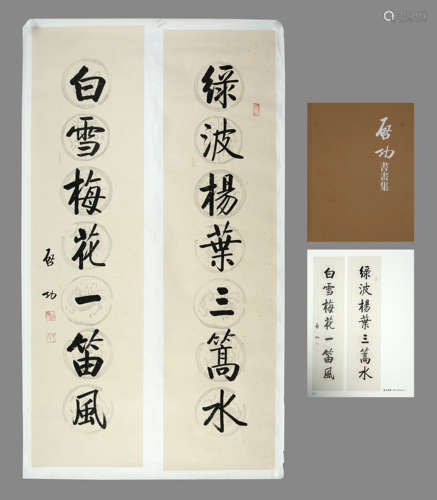 綠波楊葉三篙水
白雪梅花一笛風
啟功
啟功
書畫集
綠波楊葉三篙水
白雪梅花一笛風
啟功